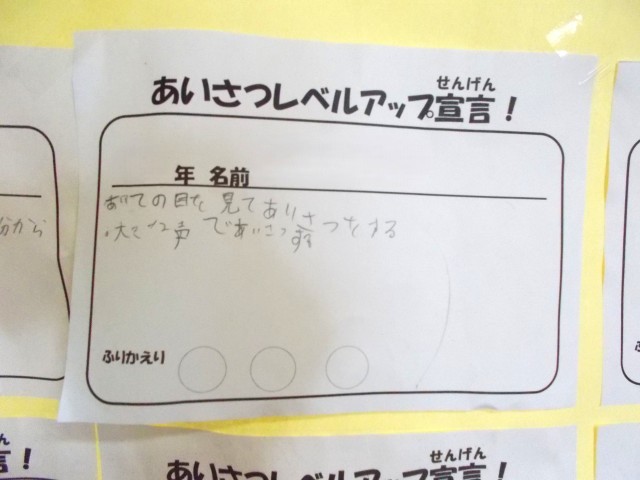 せんげん
あいさつレベルアップ宣言！
年 名前
あいての目を見てあいさつをする
・大きな声であいさつする
ふりかえり
分から
せんげん
あいさつレベルアップ宣言！
ん
言！